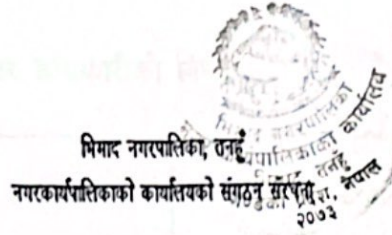 भिमाद नगरपालिका, तनहुँ
नगरकार्यपालिकाको कार्यालयको संगठन संरचना
नगरपालिका
कार्यालय
तनहुँ
नेपाल
२०७३